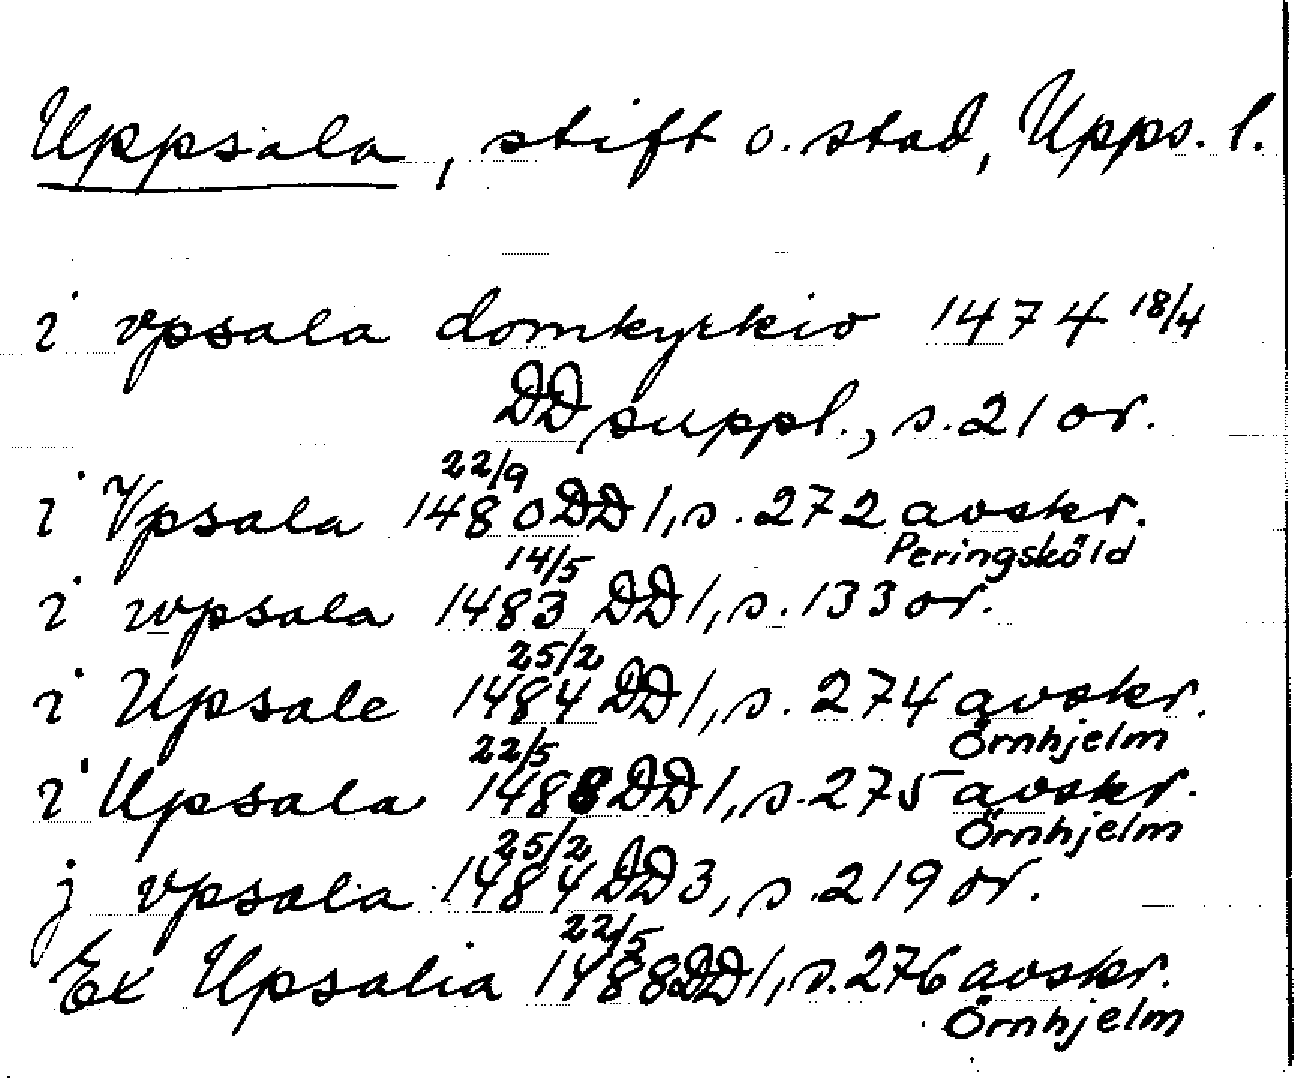 Uppsala, stift o. stad, Upps. l.
i vpsala domkyrkio 1474 18/4
DD suppl., s. 21 or.
i Vpsala 1480 22/9 DD 1, s. 272 avskr. Peringsköld
i wpsala 1483 14/5 DD 1, s. 133 or.
i Upsale 1484 25/2 DD 1, s. 274 avskr. Örnhjelm
i Upsala 1488 22/5 DD 1, s. 275 avskr. Örnhjelm
j vpsala 1484 25/2 DD 3, s. 219 or.
Ex Upsalia 1488 22/5 DD 1, s. 276 avskr. Örnhjelm